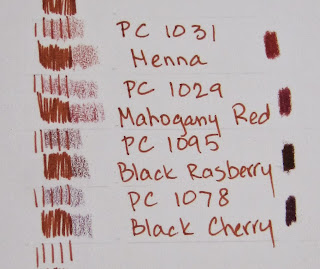 PC 1031
Henna
PC 1029
Mahogany Red
PC 1095
Black Rasberry
PC 1078
Black Cherry